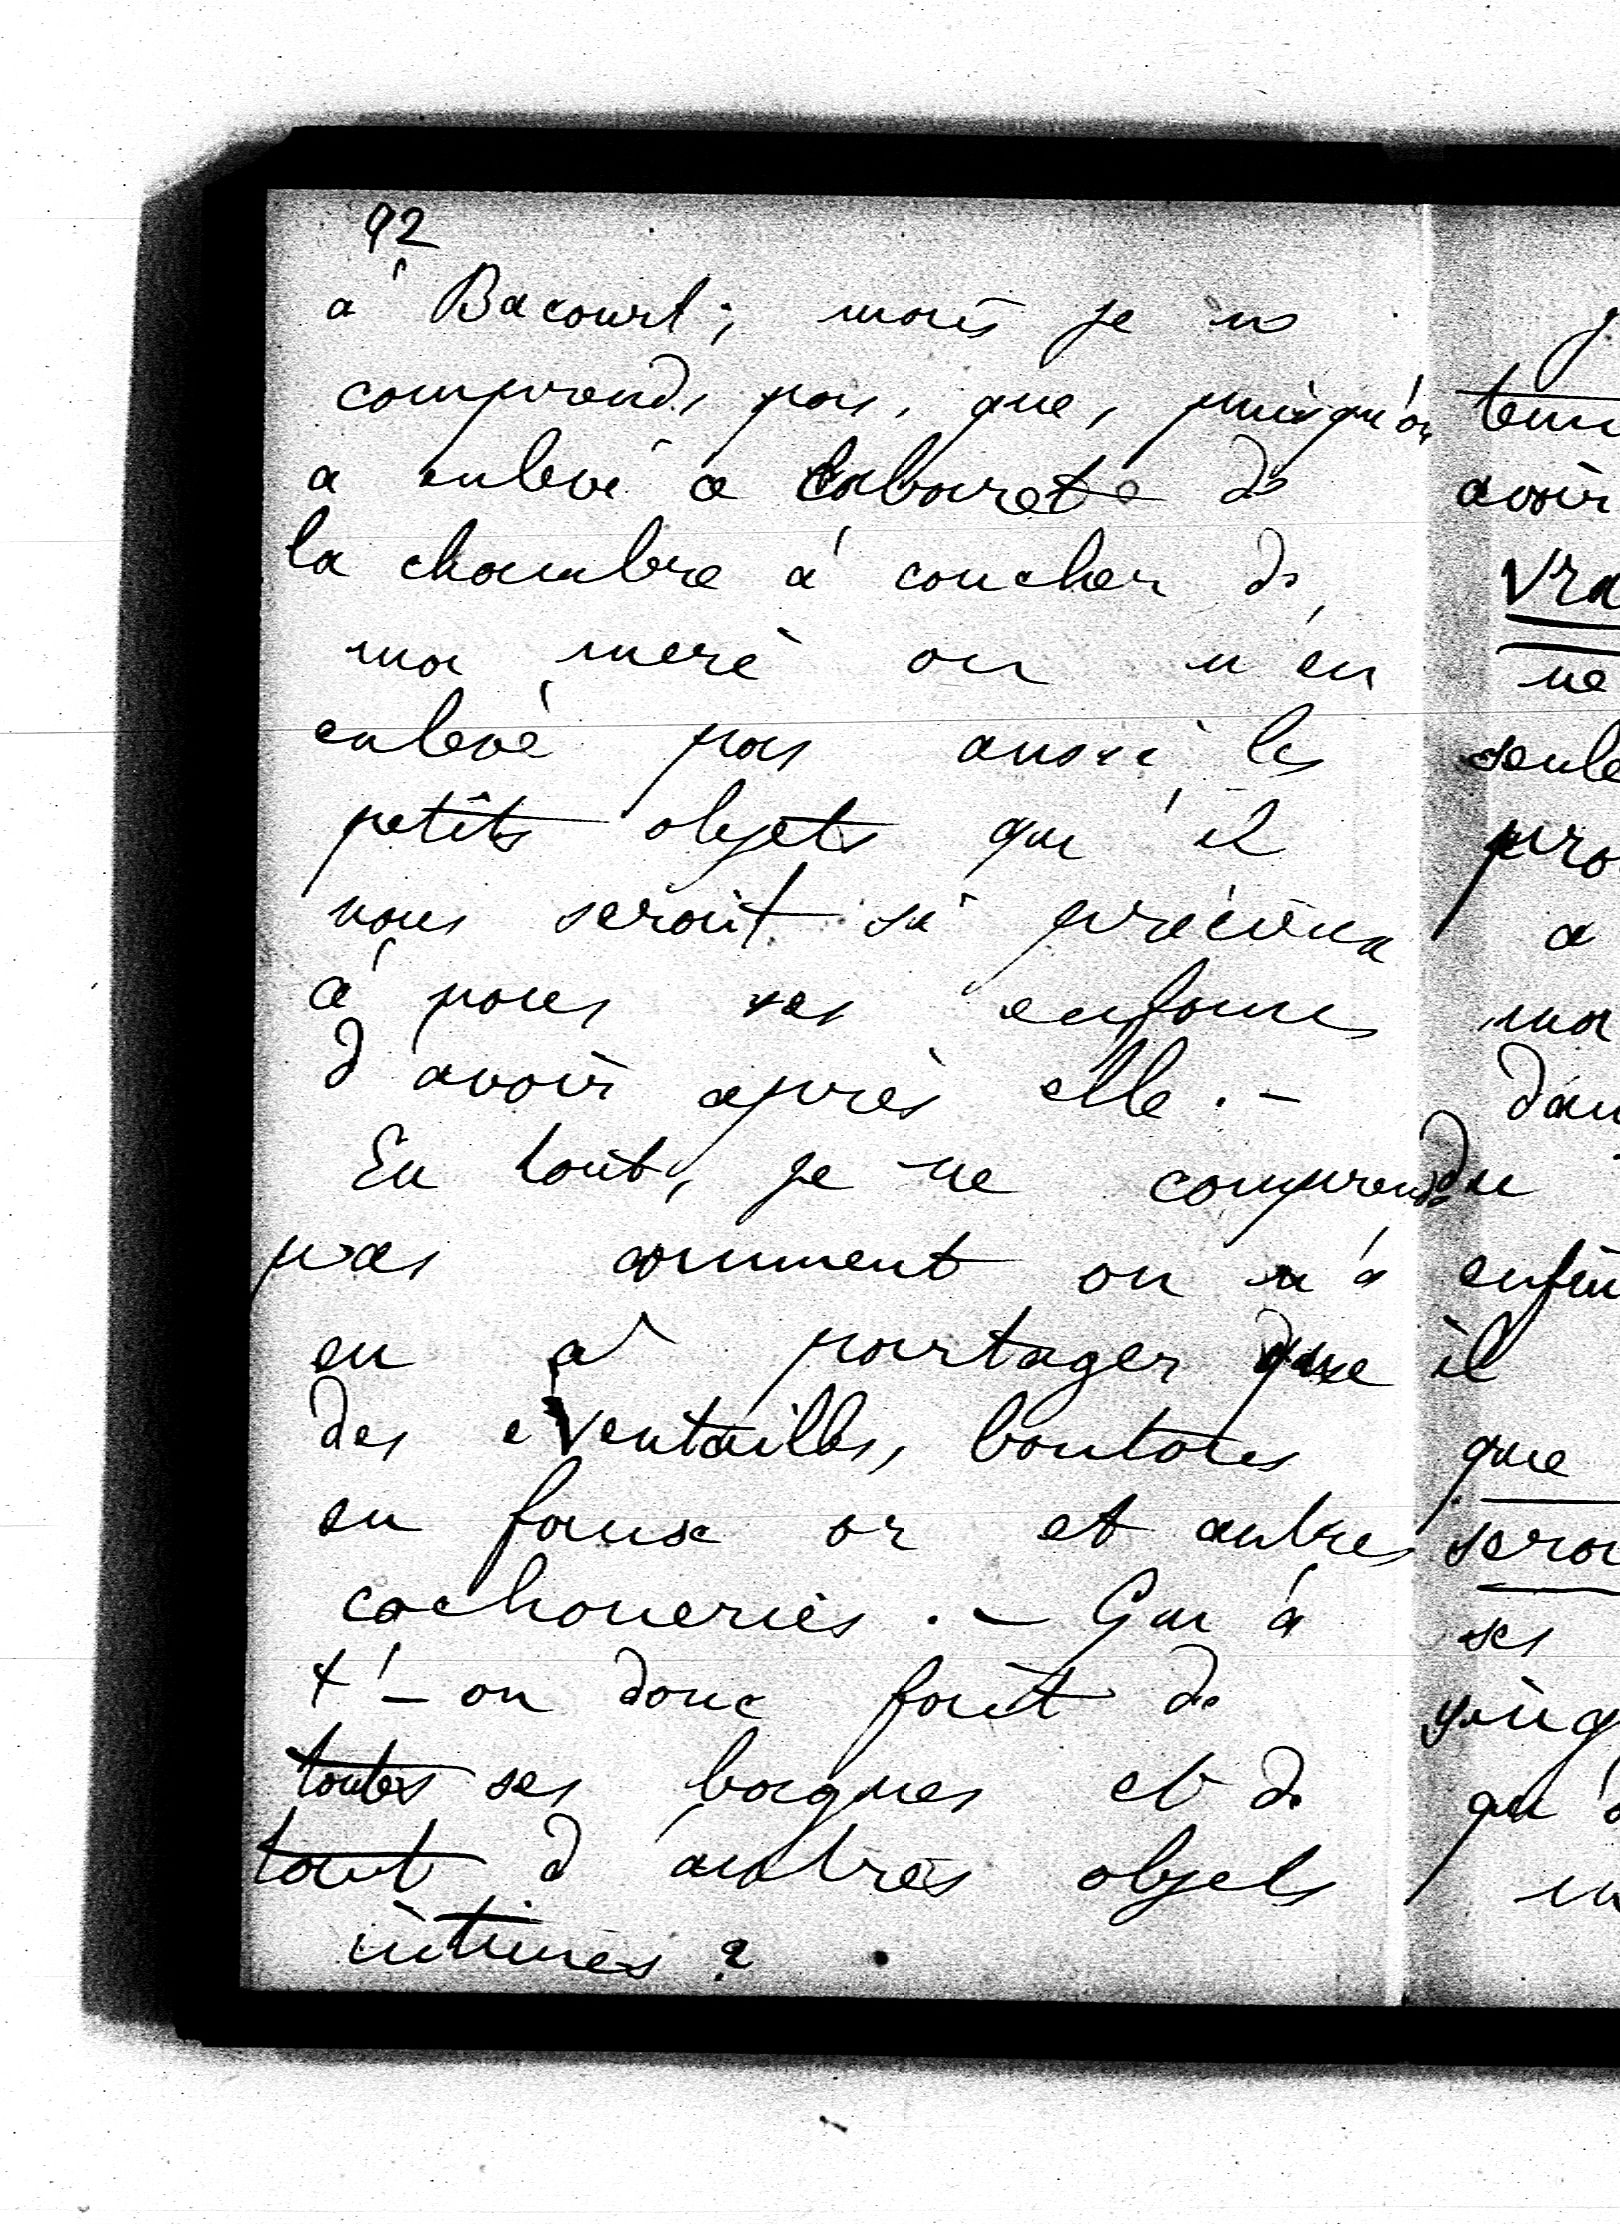 92
à Bacourt; mais je ne
comprends pas, que, puisqu'on
a enlevé ce tabouret de
la chambre à coucher de
ma mère on n'en
enlevé pas aussi les
petits objets qu'il
nous serait si précieux
à nous ses enfants
d'avoir après elle. -
En tout, je ne comprends
pas comment on n'a
eu à partager que
des eventailles, boutons
en faux or et autres
cochoneries. - Qu'a
t'-on donc fait de
toutes ses bagues et de
tout d'autres objets
intimes ?
avoir
ne
a
ma
du
il
que
ses